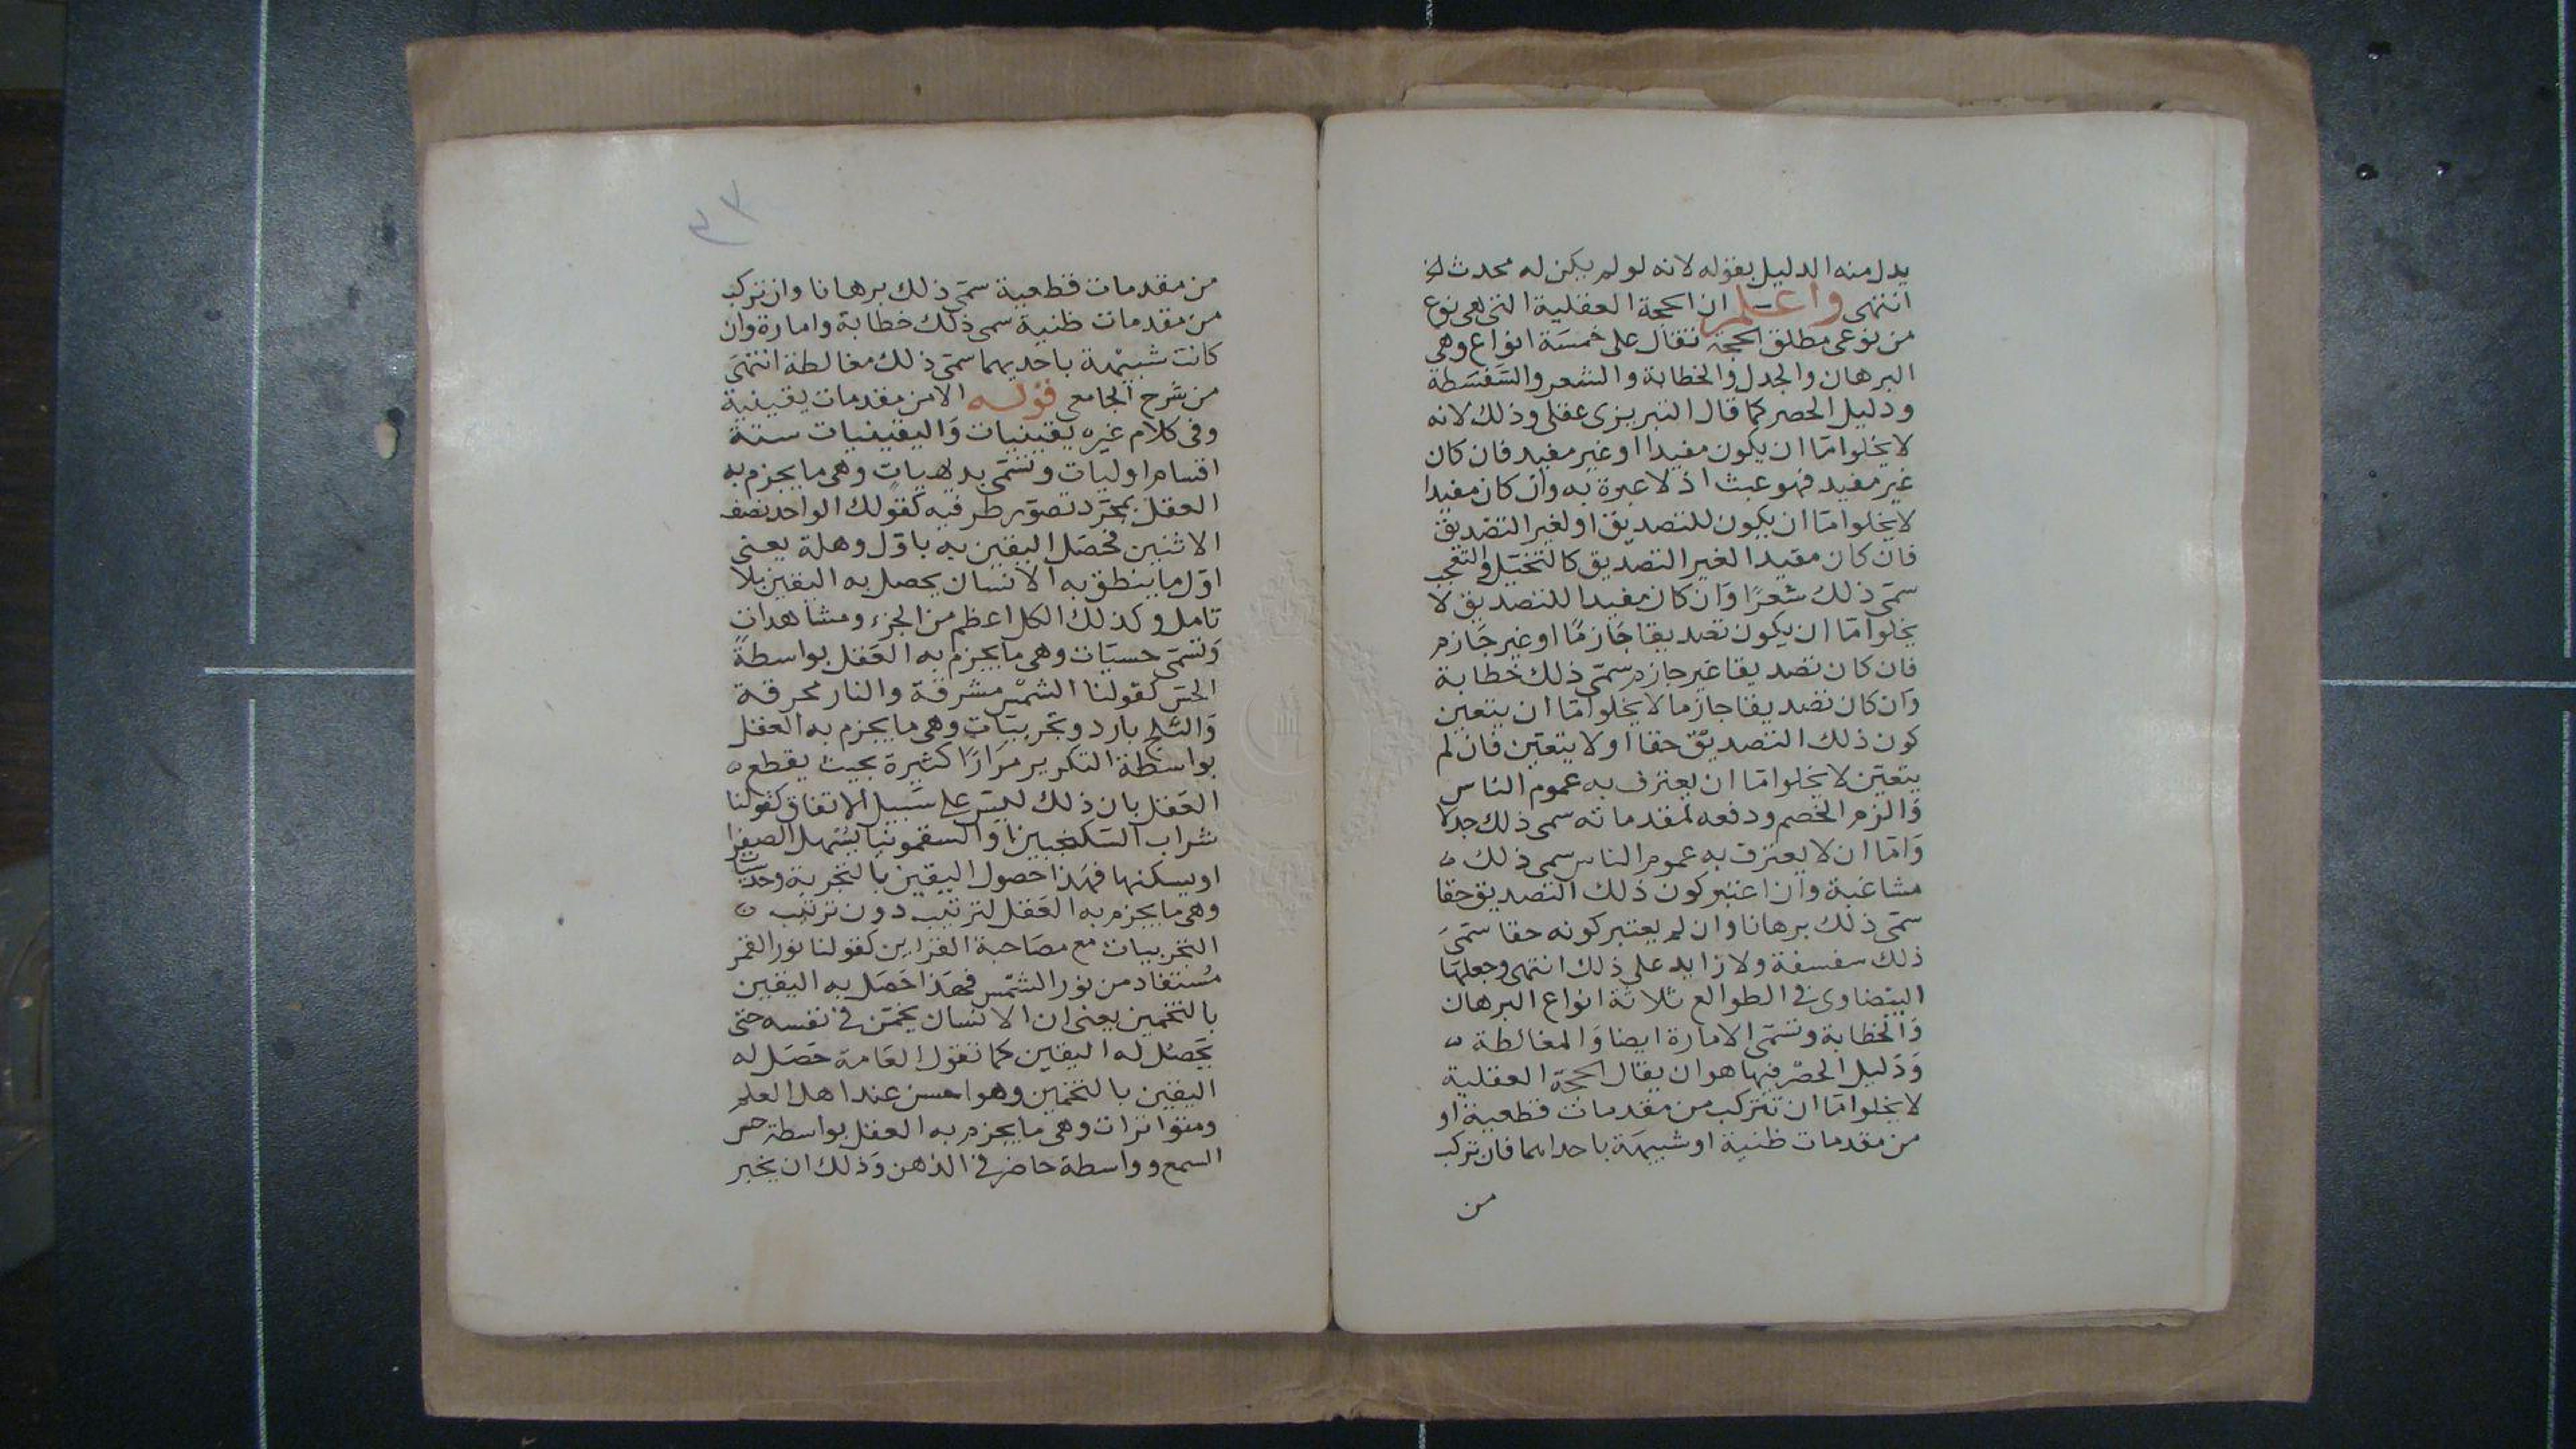 يدل منه الدليل بقوله لانه لو لم يكن له محدث لخ
انتهى واعلم ان الحجة العقلية التى هى نوع
من نوعى مطلق الحجة تقال على خمسة انواع وهى
البرهان والجدل والخطابة والشعر والسفسطة
ودليل الحصر كما قال التبريزى عقلى وذلك لانه
لا يخلوا امّا ان يكون مفيدا او غير مفيد فان كان
غير مفيد فهو عبث اذ لا عبرة به وان كان مفيدا
لا يخلوا امّا ان يكون للتصديق او لغير التصديق
فان كان مفيدا لغير التصديق كالتخيّل والتعجب
سمّى ذلك شعرًا وان كان مفيدا للتصديق لا
يخلوا امّا ان يكون تصديقا جازمًا او غير جازم
فان كان تصديقا غير جازم سمّى ذلك خطابة
وان كان تصديقا جازما لا يخلوا امّا ان يتعين
كون ذلك التصديق حقا اولا يتعيّن فان لم
يتعيّن لا يخلوا امّا ان يعترف به عموم الناس
والزم الخصم ودفعه لمقدماته سمى ذلك جدلا
وامّا ان لا يعترف به عموم الناس سمى ذلك
مشاغبة وان اعتبر كون ذلك التصديق حقا
سمّى ذلك برهانا وان لم يعتبر كونه حقا سمّى
ذلك سفسفة ولا زايد على ذلك انتهى وجعلها
البيضاوى فى الطوالع ثلاثة انواع البرهان
والخطابة وتسمّى الامارة ايضا والمغالطة
ودليل الحصر فيها هو ان يقال الحجة العقلية
لا يخلوا امّا ان تتركب من مقدمات قطعية او
من مقدمات ظنية او شبيهة باحداهما فان تركب
من
٣٣
من مقدمات قطعية سمّى ذلك برهانا وان تركب
من مقدمات ظنية سمى ذلك خطابة وامارة وان
كانت شبيهة باحديهما سمّى ذلك مغالطة انتهى
من شرح الجامعى قوله الا من مقدمات يقينية
وفى كلام غيره يقينيات واليقينيات ستة
اقسام اوليات وتسمّى بديهيات وهى ما يجزم به
العقل بمجرّد تصوّر طرفيه كقولك الواحد نصف
الاثنين فحصل اليقين به باوّل وهلة يعنى
اوّل ما ينطق به الانسان يحصل به اليقين بلا
تامل وكذلك الكل اعظم من الجزء ومشاهدات
وتسمّى حسيّات وهى ما يجزم به العقل بواسطة
الحسّ كقولنا الشمس مشرقة والنار محرقة
والثلج بارد وتجربيّات وهى ما يجزم به العقل
بواسطة التكرير مرارًا كثيرة بحيث يقطع
العقل بان ذلك ليس على سبيل الاتفاق كقولنا
شراب السكنجبين والسقمونيا يسهل الصفرا
او يسكنها فهذا حصول اليقين بالتجربة وحدسيّات
وهى ما يجزم به العقل لترتيب دون ترتيب
التجربيات مع مصاحبة القراين كقولنا نور القمر
مستفاد من نور الشمس فهذا حصل به اليقين
بالتخمين يعنى ان الانسان يخمّن فى نفسه حتى
يحصل له اليقين كما تقول العامة حصل له
اليقين بالتخمين وهو احسن عند اهل العلم
ومتواترات وهى ما يجزم به العقل بواسطة حس
السمع وواسطة حاضر فى الذهن وذلك ان يخبر